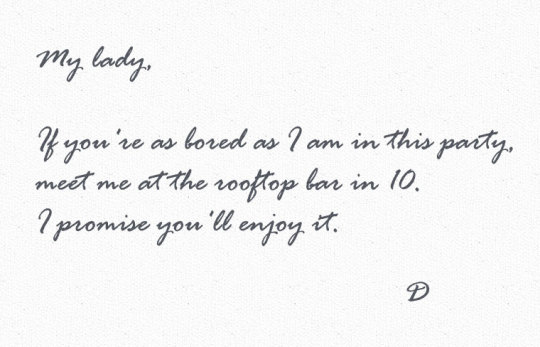 My lady,
If you're as bored as I am in this party,
meet me at the rooftop bar in 10.
I promise you'll enjoy it.
D